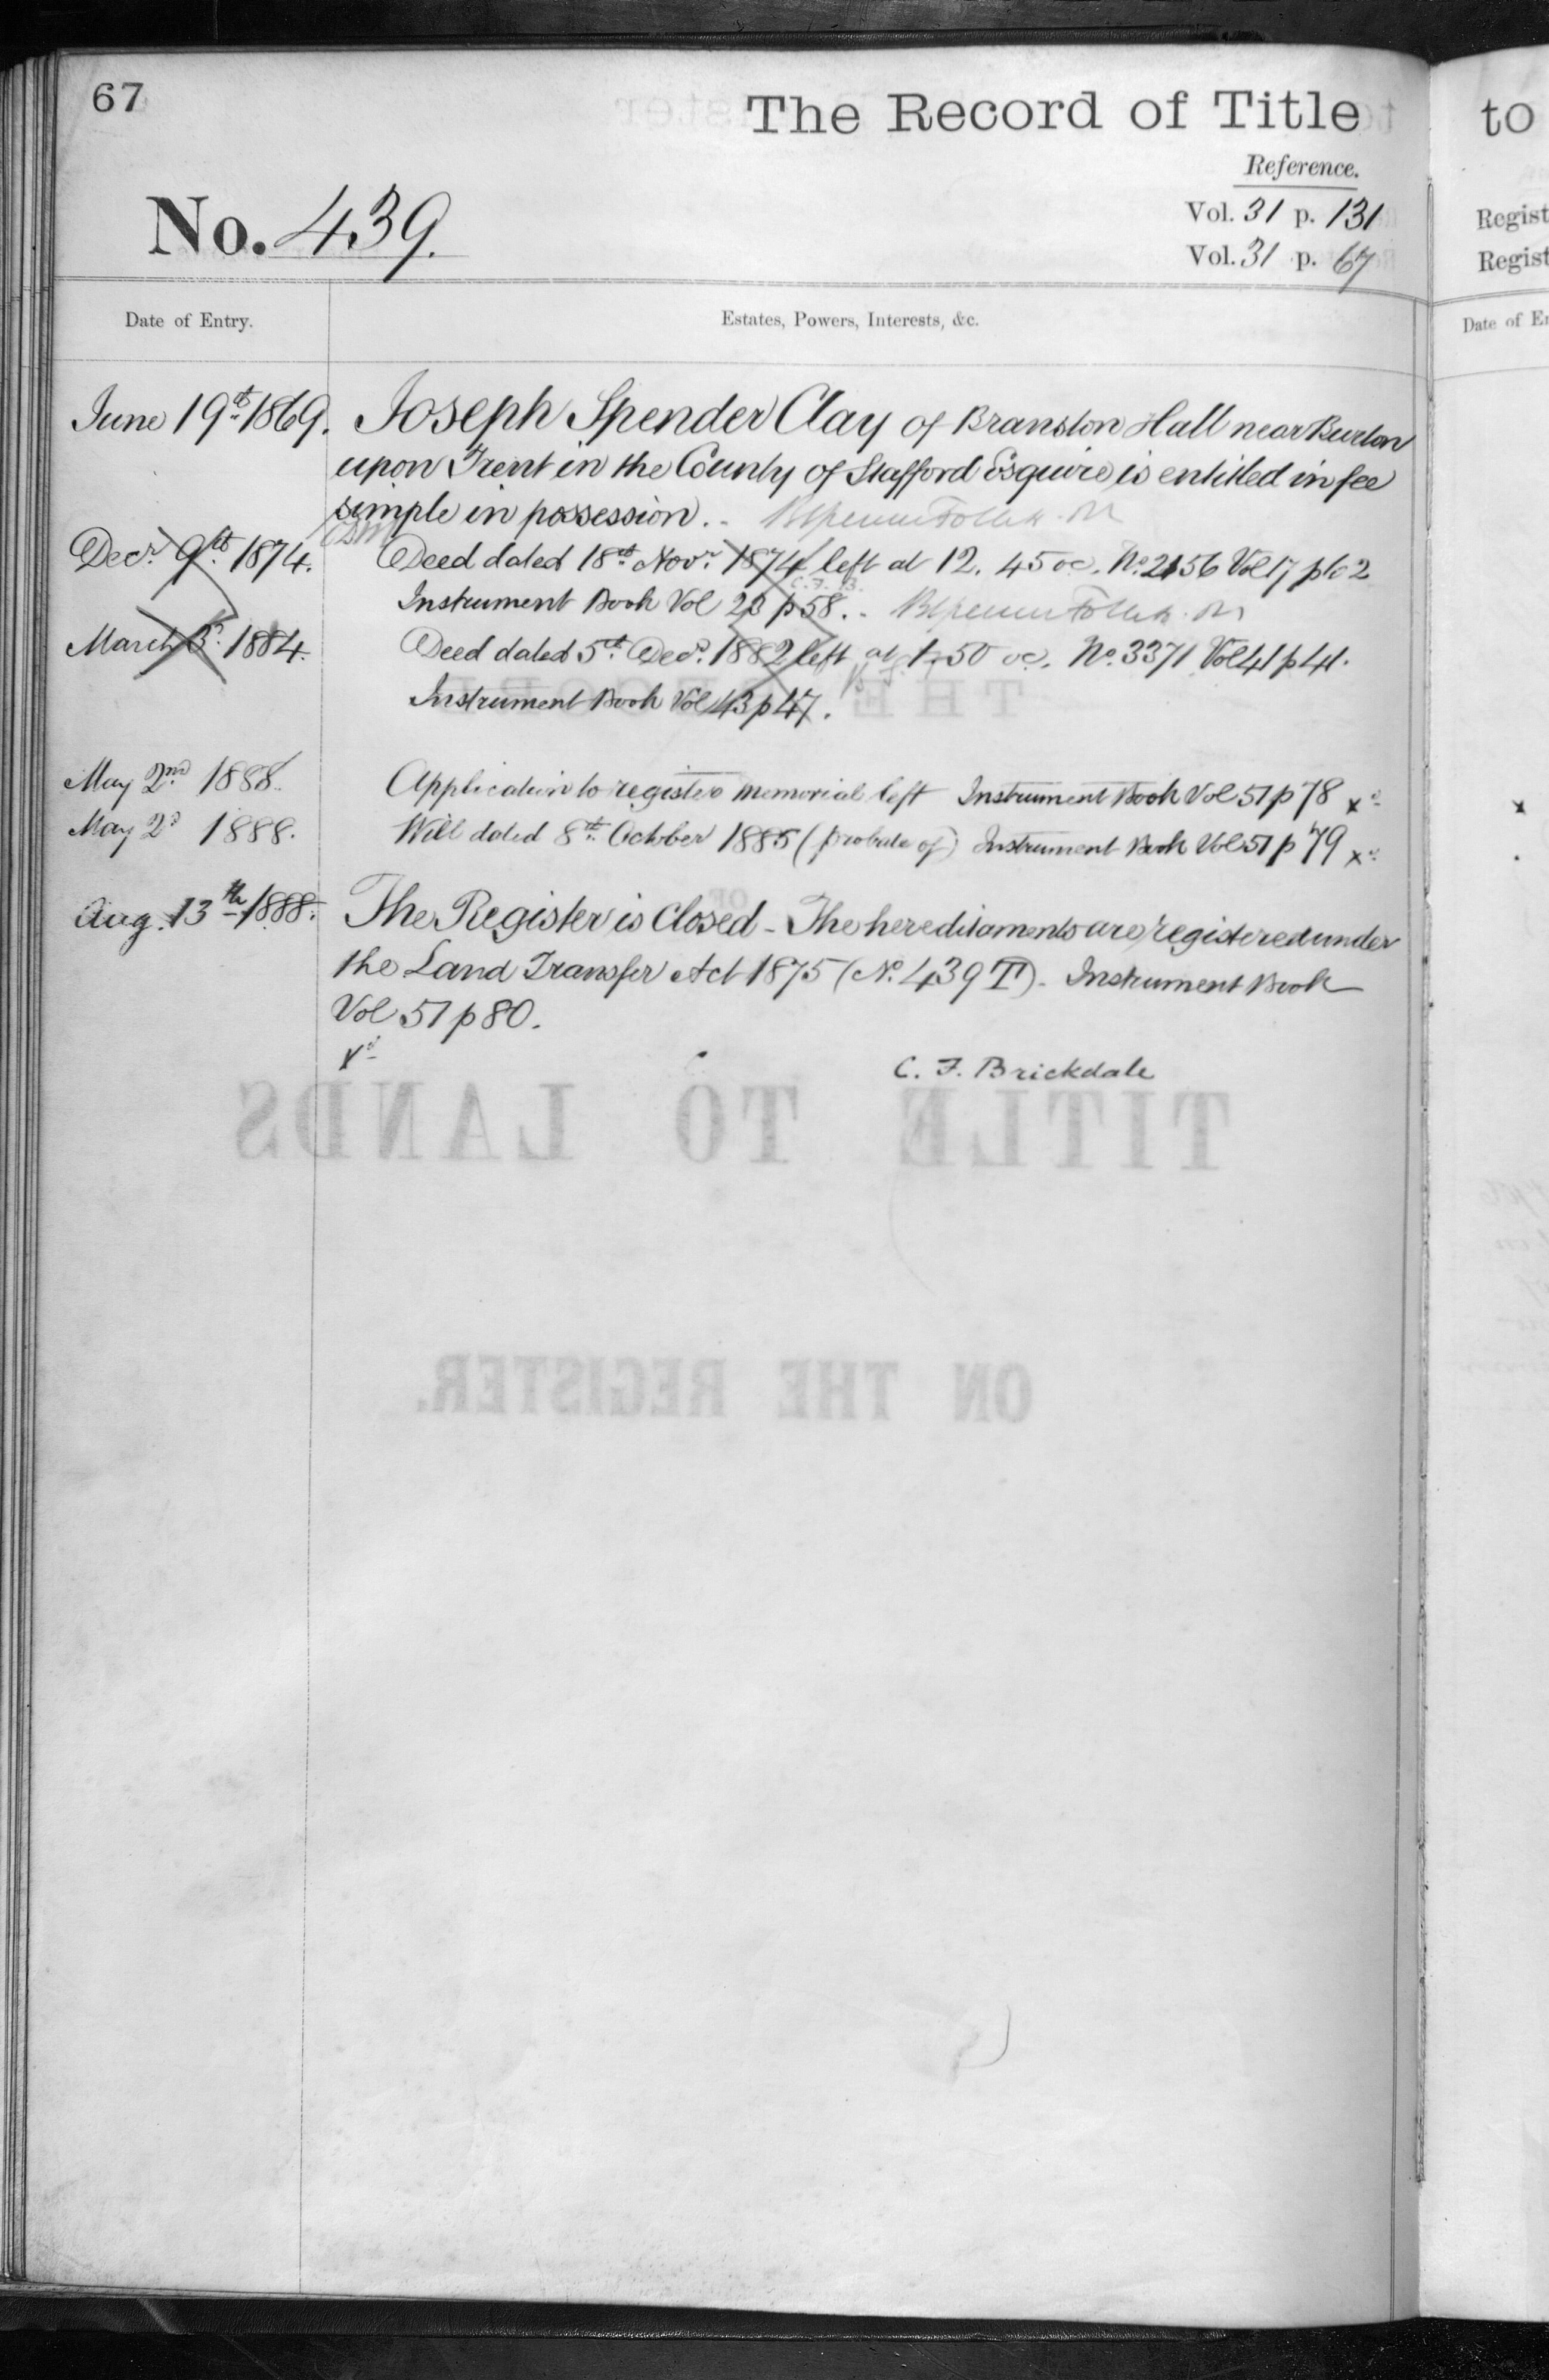 67
The Record of Title
to
Reference.
No. 439.
Vol. 31 p. 131
Vol. 31 p. 67
Regist
Regist
Date of Entry.
Estates, Powers, Interests, &c.
Date of E
June 19th 1869. Joseph Spender Clay of Branston Hall near Burton
upon Trent in the County of Stafford Esquire is entitled in fee
simple in possession.
Decr. 9th 1874. Deed dated 18th Novr. 1874 left at 12. 45 oc. No. 2156 Vol 17 p 62
Instrument Book Vol 23 p 58.
March 3d. 1884. Deed dated 5th Decr. 1882 left at 1.50 oc. No. 3371 Vol 41 p 41.
Instrument Book Vol 43 p 47.
May 2nd 1888. Application to register memorial left Instrument Book Vol 51 p 78
May 2d 1888. Will dated 8th October 1885 (probate of) Instrument Book Vol 51 p 79
Aug. 13th 1888. The Register is Closed - The hereditaments are registered under
the Land Transfer Act 1875 (No. 439 T). Instrument Book
Vol 51 p 80.
C. F. Brickdale
THE
OF
TITLE TO LANDS
ON THE REGISTER.